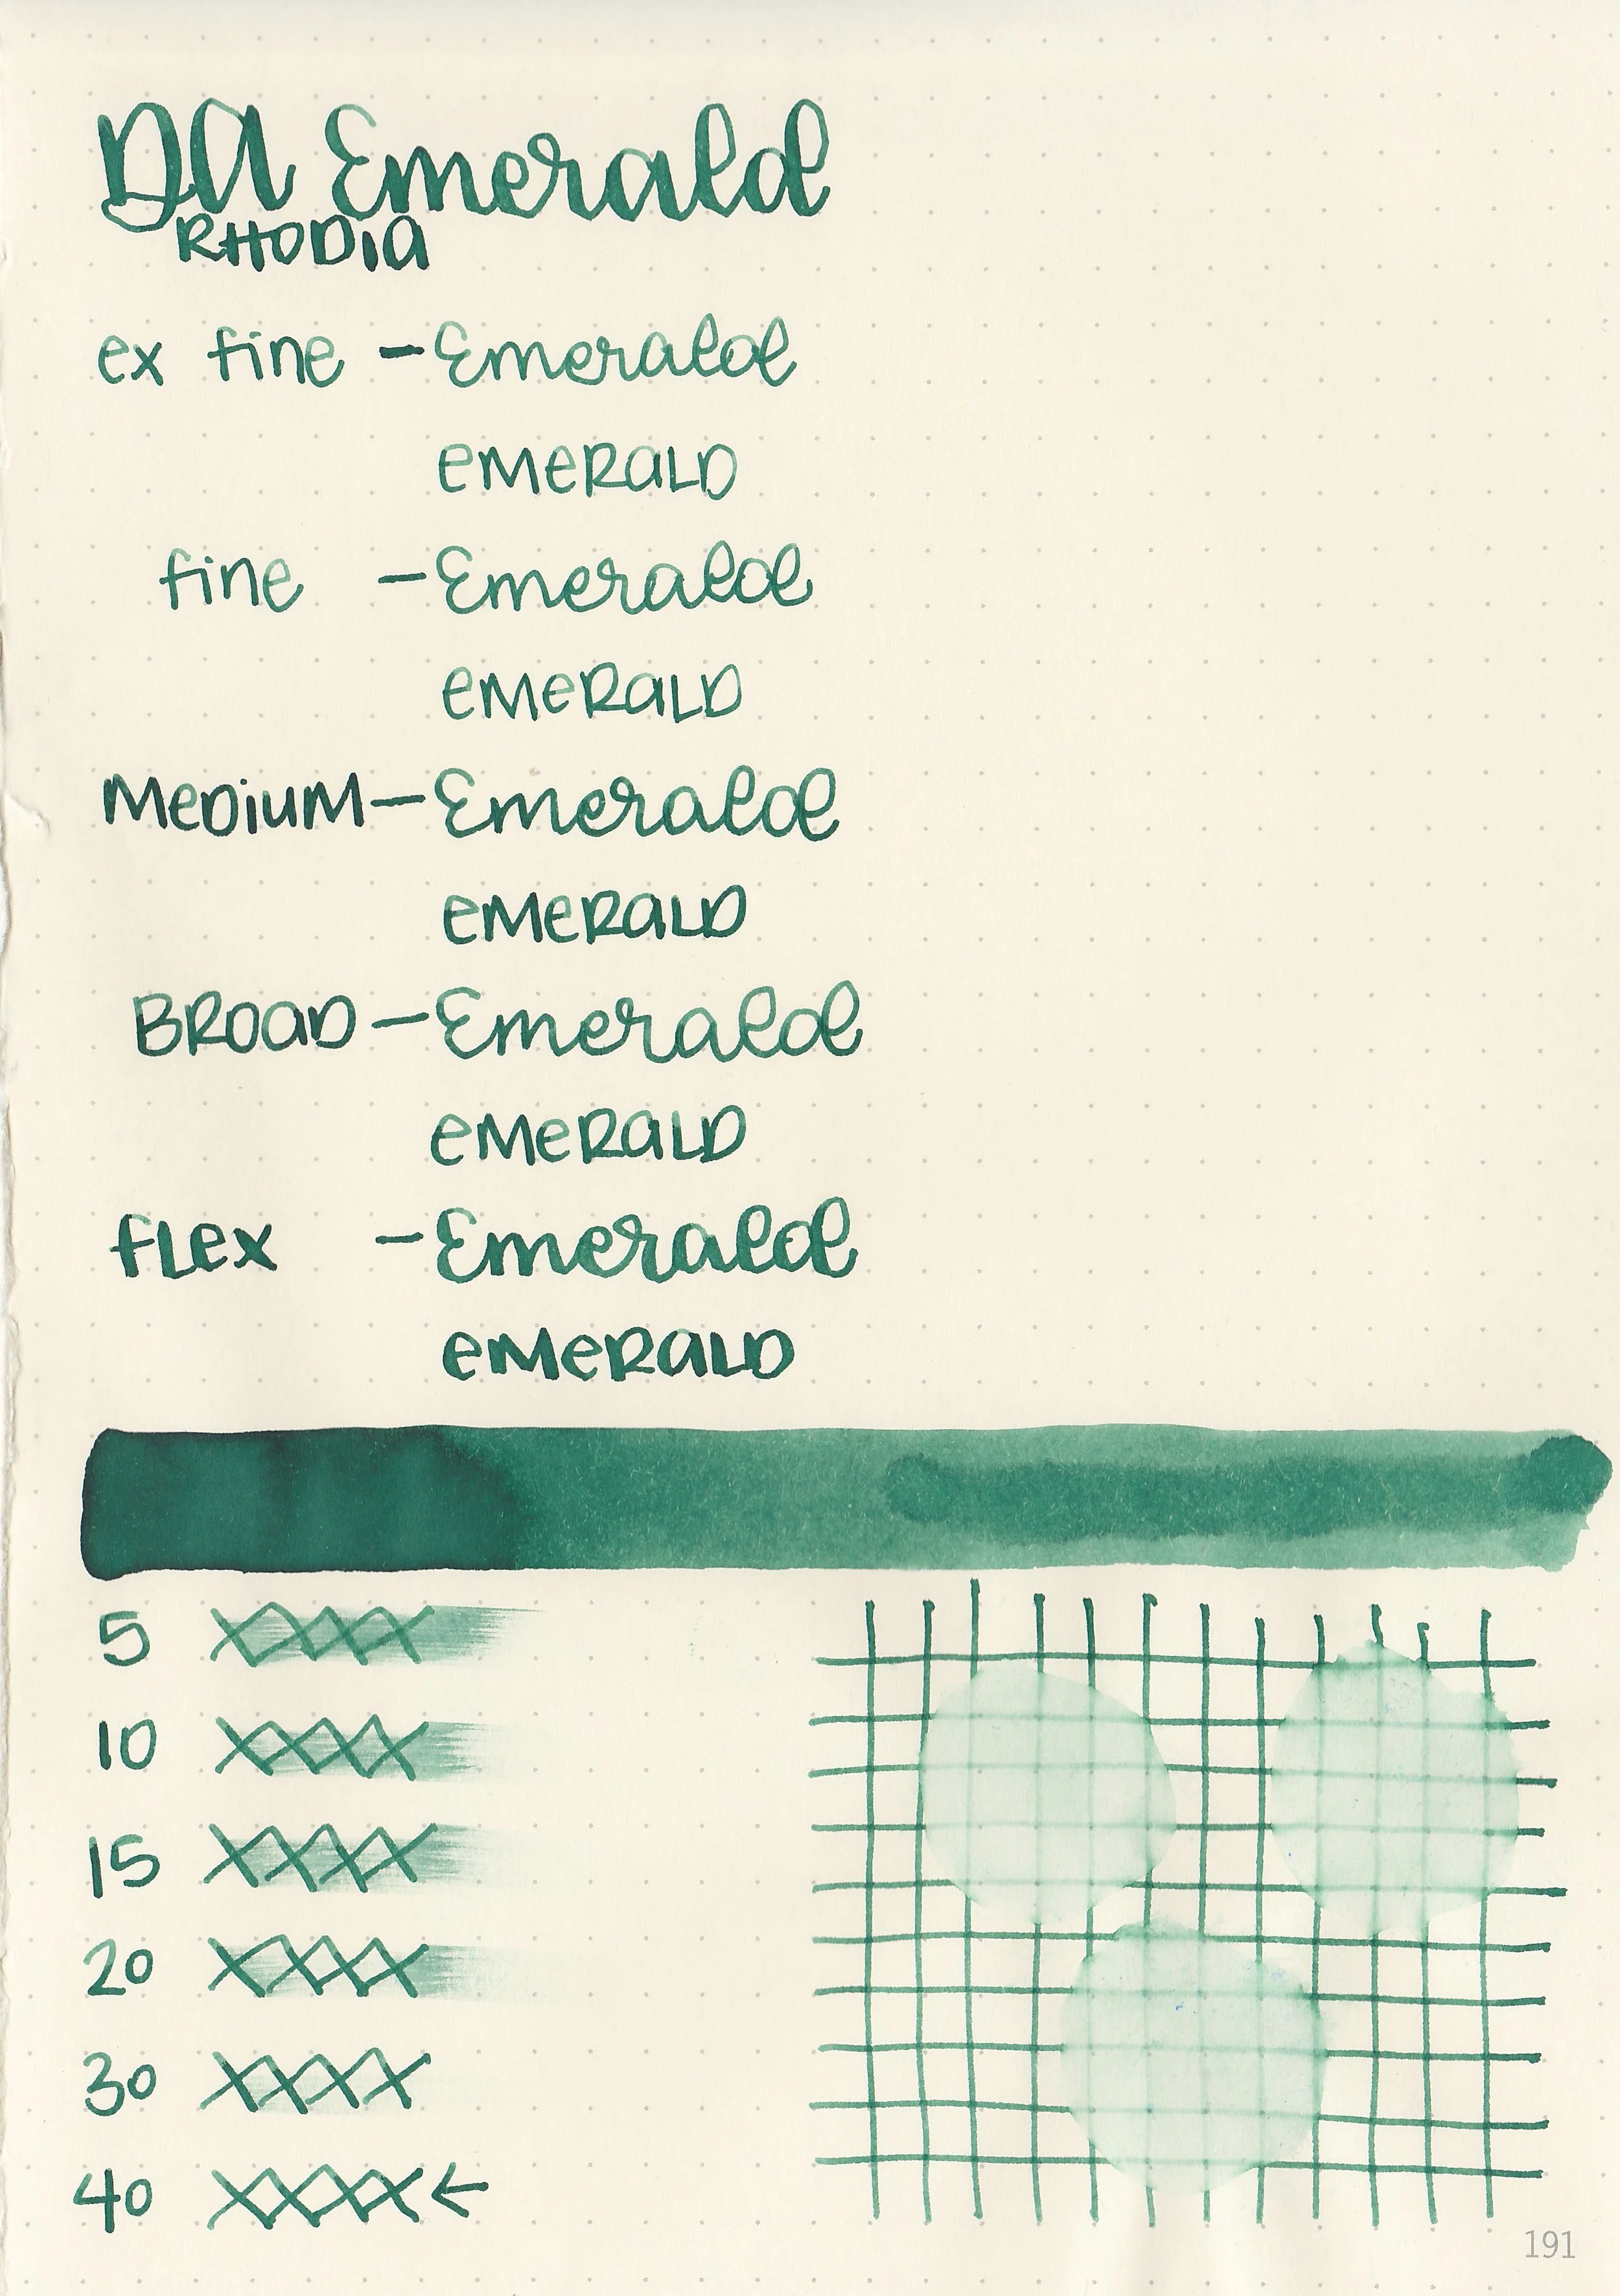 DA Emerald
RHODIA
ex fine - Emerald
EMERALD
fine - Emerald
EMERALD
MEDIUM - Emerald
EMERALD
BROAD - Emerald
EMERALD
FLEX - Emerald
EMERALD
5 XXXX
10 XXXX
15 XXXX
20 XXXX
30 XXXX
40 XXXX ←
191